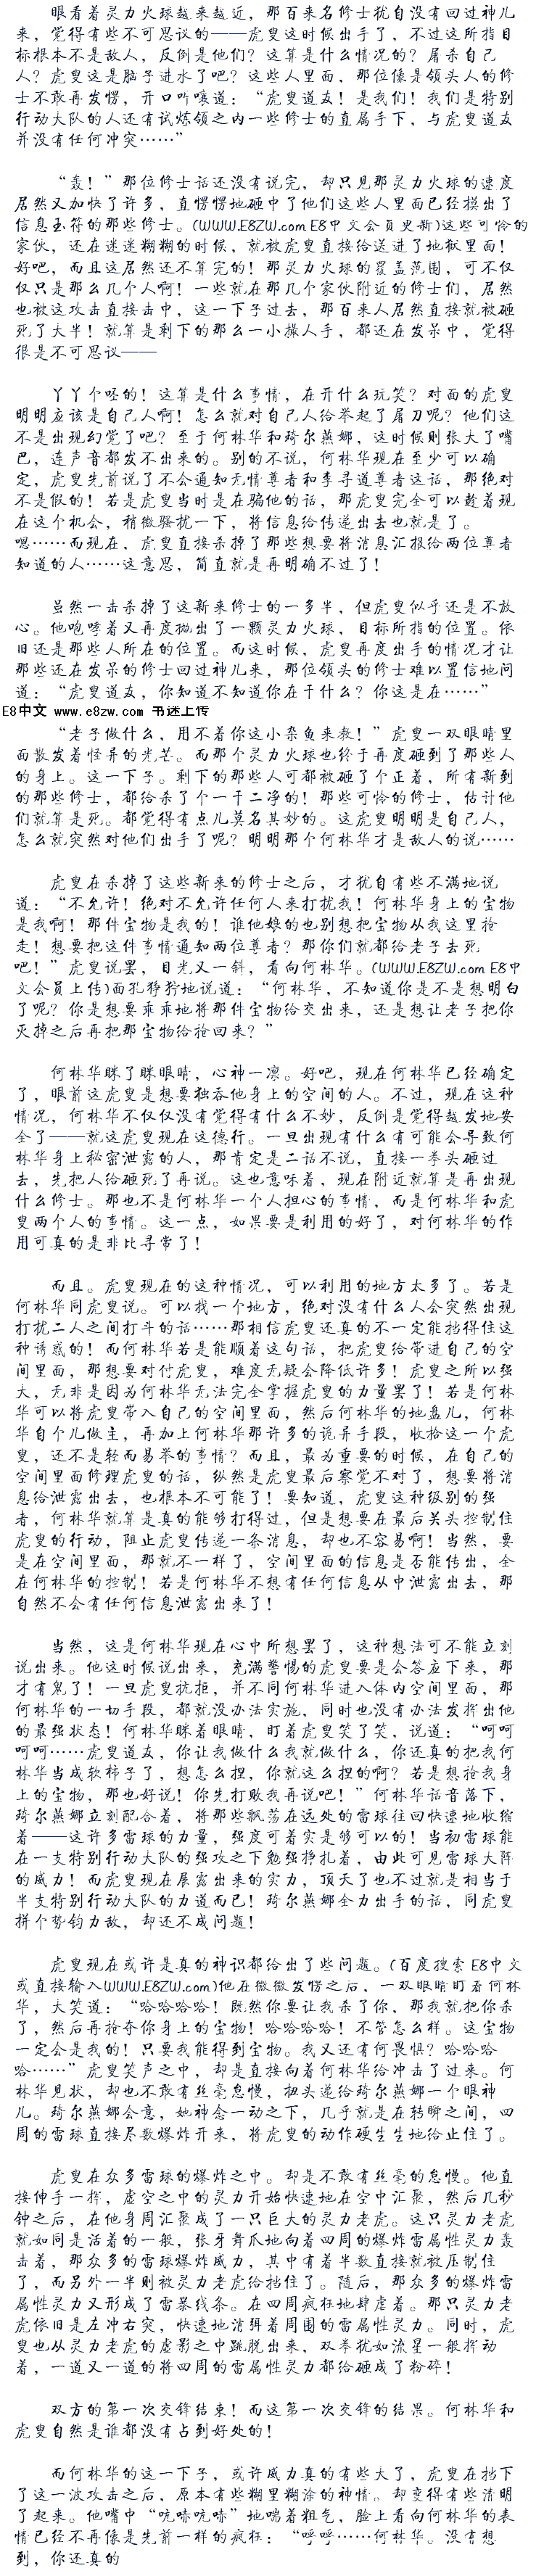 眼看着灵力火球越来越近，那百来名修士犹自没有回过神儿
来，觉得有些不可思议的——虎叟这时候出手了，不过这所指目
标根本不是敌人，反倒是他们？这算是什么情况的？屠杀自己
人？虎叟这是脑子进水了吧？这些人里面，那位像是领头人的修
士不敢再发愣，开口听嚷道：“虎叟道友！是我们！我们是特别
行动大队的人还有试炼领之内一些修士的直属手下，与虎叟道友
并没有任何冲突……”
“轰！”那位修士话还没有说完，却只见那灵力火球的速度
居然又加快了许多，直愣愣地砸中了他们这些人里面已经摸出了
信息玉符的那些修士。(WWW.E8ZW.com E8中文会员更新)这些可怜的
家伙，还在迷迷糊糊的时候，就被虎叟直接给送进了地狱里面！
好吧，而且这居然还不算完的！那灵力火球的覆盖范围，可不仅
仅只是那么几个人啊！一些就在那几个家伙附近的修士们，居然
也被这攻击直接击中，这一下子过去，那百来人居然直接就被砸
死了大半！就算是剩下的那么一小撮人手，都还在发呆中，觉得
很是不可思议——
丫丫个呸的！这算是什么事情，在开什么玩笑？对面的虎叟
明明应该是自己人啊！怎么就对自己人给举起了屠刀呢？他们这
不是出现幻觉了吧？至于何林华和琦尔燕娜，这时候则张大了嘴
巴，连声音都发不出来的。别的不说，何林华现在至少可以确
定，虎叟先前说了不会通知无情尊者和李寻道尊者这话，那绝对
不是假的！若是虎叟当时是在骗他的话，那虎叟完全可以趁着现
在这个机会，稍微骚扰一下，将信息给传递出去也就是了。
嗯……而现在，虎叟直接杀掉了那些想要将消息汇报给两位尊者
知道的人……这意思，简直就是再明确不过了！
虽然一击杀掉了这新来修士的一多半，但虎叟似乎还是不放
心。他咆哮着又再度抛出了一颗灵力火球，目标所指的位置。依
旧还是那些人所在的位置。而这时候，虎叟再度出手的情况才让
那些还在发呆的修士回过神儿来，那位领头的修士难以置信地问
道：“虎叟道友，你知道不知道你在干什么？你这是在……”
E8中文 www.e8zw.com 书迷上传
“老子做什么，用不着你这小杂鱼来教！”虎叟一双眼睛里
面散发着怪异的光芒。而那个灵力火球也终于再度砸到了那些人
的身上。这一下子。剩下的那些人可都被砸了个正着，所有新到
的那些修士，都给杀了个一干二净的！那些可怜的修士，估计他
们就算是死。都觉得有点儿莫名其妙的。这虎叟明明是自己人，
怎么就突然对他们出手了呢？明明那个何林华才是敌人的说……
虎叟在杀掉了这些新来的修士之后，才犹自有些不满地说
道：“不允许！绝对不允许任何人来打扰我！何林华身上的宝物
是我啊！那件宝物是我的！谁他娘的也别想把宝物从我这里抢
走！想要把这件事情通知两位尊者？那你们就都给老子去死
吧！”虎叟说罢，目光又一斜，看向何林华。(WWW.E8ZW.com E8中
文会员上传)面孔狰狞地说道：“何林华，不知道你是不是想明白
了呢？你是想要乖乖地将那件宝物给交出来，还是想让老子把你
灭掉之后再把那宝物给抢回来？”
何林华眯了眯眼睛，心神一凛。好吧，现在何林华已经确定
了，眼前这虎叟是想要独吞他身上的空间的人。不过，现在这种
情况，何林华不仅仅没有觉得有什么不妙，反倒是觉得越发地安
全了——就这虎叟现在这德行。一旦出现有什么有可能会导致何
林华身上秘密泄露的人，那肯定是二话不说，直接一拳头砸过
去，先把人给砸死了再说。这也意味着，现在附近就算是再出现
什么修士。那也不是何林华一个人担心的事情，而是何林华和虎
叟两个人的事情。这一点，如果要是利用的好了，对何林华的作
用可真的是非比寻常了！
而且。虎叟现在的这种情况，可以利用的地方太多了。若是
何林华同虎叟说。可以找一个地方，绝对没有什么人会突然出现
打扰二人之间打斗的话……那相信虎叟还真的不一定能挡得住这
种诱惑的！而何林华若是能顺着这句话，把虎叟给带进自己的空
间里面，那想要对付虎叟，难度无疑会降低许多！虎叟之所以强
大，无非是因为何林华无法完全掌握虎叟的力量罢了！若是何林
华可以将虎叟带入自己的空间里面，然后何林华的地盘儿，何林
华自个儿做主，再加上何林华那许多的诡异手段，收拾这一个虎
叟，还不是轻而易举的事情？而且，最为重要的时候，在自己的
空间里面修理虎叟的话，纵然是虎叟最后察觉不对了，想要将消
息给泄露出去，也根本不可能了！要知道，虎叟这种级别的强
者，何林华就算是真的能够打得过，但是想要在最后关头控制住
虎叟的行动，阻止虎叟传递一条消息，却也不容易啊！当然，要
是在空间里面，那就不一样了，空间里面的信息是否能传出，全
在何林华的控制！若是何林华不想有任何信息从中泄露出去，那
自然不会有任何信息泄露出来了！
当然，这是何林华现在心中所想罢了，这种想法可不能立刻
说出来。他这时候说出来，充满警惕的虎叟要是会答应下来，那
才有鬼了！一旦虎叟抗拒，并不同何林华进入体内空间里面，那
何林华的一切手段，都就没办法实施，同时也没有办法发挥出他
的最强状态！何林华眯着眼睛，盯着虎叟笑了笑，说道：“呵呵
呵呵……虎叟道友，你让我做什么我就做什么，你还真的把我何
林华当成软柿子了，想怎么捏，你就这么捏的啊？若是想抢我身
上的宝物，那也好说！你先打败我再说吧！”何林华话音落下，
琦尔燕娜立刻配合着，将那些飘荡在远处的雷球往回快速地收缩
着——这许多雷球的力量，强度可着实是够可以的！当初雷球能
在一支特别行动大队的强攻之下勉强挣扎着，由此可见雷球大阵
的威力！而虎叟现在展露出来的实力，顶天了也不过就是相当于
半支特别行动大队的力道而已！琦尔燕娜全力出手的话，同虎叟
拼个势钧力敌，却还不成问题！
虎叟现在或许是真的神识都给出了些问题。(百度搜索 E8中文
或直接输入WWW.E8ZW.com)他在微微发愣之后，一双眼睛盯着何林
华，大笑道：“哈哈哈哈！既然你要让我杀了你、那我就把你杀
了，然后再抢夺你身上的宝物！哈哈哈哈！不管怎么样。这宝物
一定会是我的！只要我能得到宝物。我又还有何畏惧？哈哈哈
哈……”虎叟笑声之中，却是直接向着何林华给冲击了过来。何
林华见状，却也不敢有丝毫怠慢，扭头递给琦尔燕娜一个眼神
儿。琦尔燕娜会意，她神念一动之下，几乎就是在转瞬之间，四
周的雷球直接尽数爆炸开来，将虎叟的动作硬生生地给止住了。
虎叟在众多雷球的爆炸之中。却是不敢有丝毫的怠慢。他直
接伸手一挥，虚空之中的灵力开始快速地在空中汇聚，然后几秒
钟之后，在他身周汇聚成了一只巨大的灵力老虎。这只灵力老虎
就如同是活着的一般，张牙舞爪地向着四周的爆炸雷属性灵力轰
击着，那众多的雷球爆炸威力，其中有着半数直接就被压制住
了，而另外一半则被灵力老虎给挡住了。随后，那众多的爆炸雷
属性灵力又形成了雷暴线条。在四周疯狂地肆虐着。那只灵力老
虎依旧是左冲右突，快速地消弭着周围的雷属性灵力。同时，虎
叟也从灵力老虎的虚影之中跳脱出来，双拳犹如流星一般挥动
着，一道又一道的将四周的雷属性灵力都给砸成了粉碎！
双方的第一次交锋结束！而这第一次交锋的结果。何林华和
虎叟自然是谁都没有占到好处的！
而何林华的这一下子，或许威力真的有些大了，虎叟在挡下
了这一波攻击之后，原本有些糊里糊涂的神情。却变得有些清明
了起来。他嘴中“吭哧吭哧”地喘着粗气，脸上看向何林华的表
情已经不再像是先前一样的疯狂：“呼呼……何林华。没有想
到，你还真的